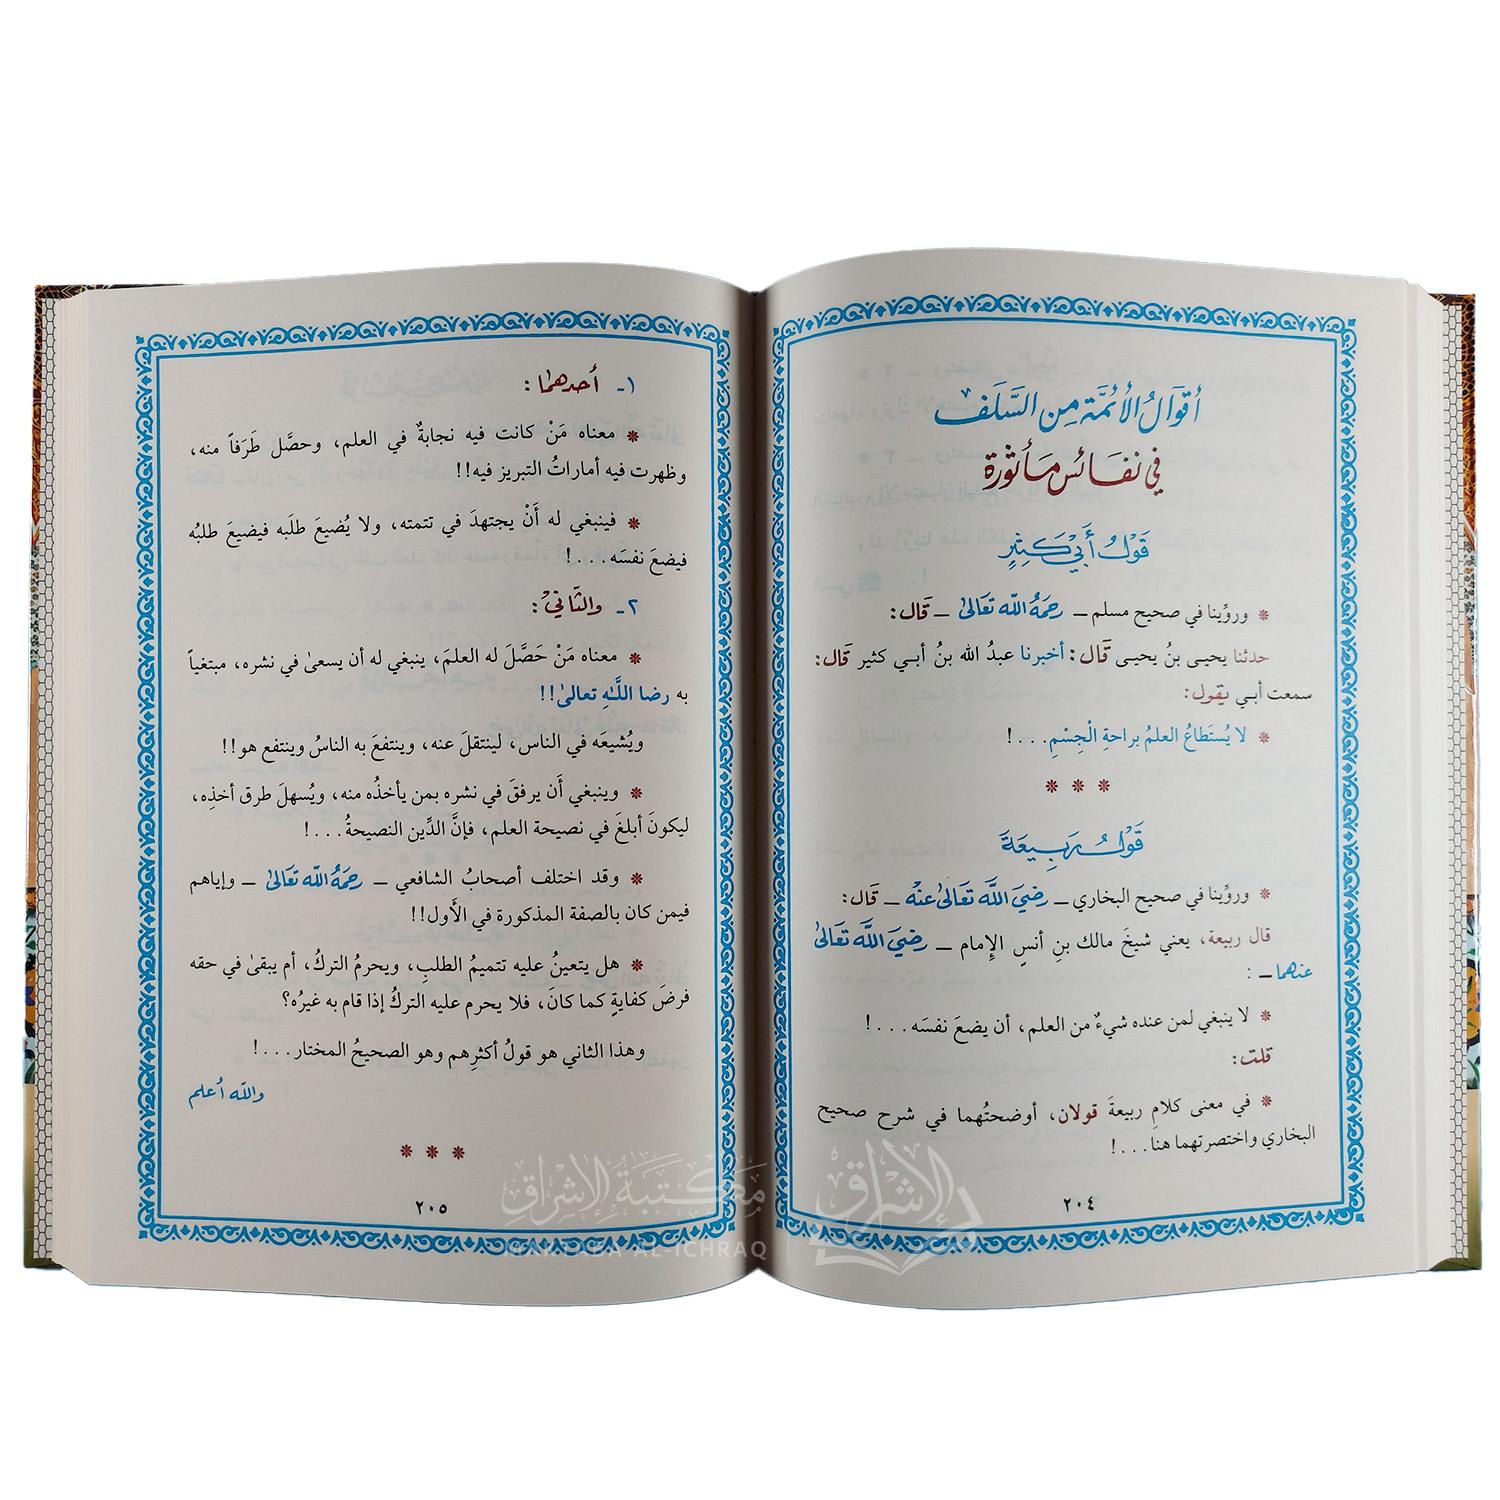 أقوال الأئمَّة من السَّلَف
في نفائس مأثورة
قَوْلُ أَبي كَثِيرٍ
* ورويِّنا في صحيح مسلم ـ رحمَهُ اللّه تعَالىٰ ـ قال:
حدثنا يحيـى بنُ يحيـى قال: أخبرنا عبدُ الله بنُ أبـي كثير قال:
سمعت أبـي يقول:
* لا يُستَطاعُ العلمُ براحةِ الْجِسْمِ...!
* * *
قَوْلُ رَبِيعَة
* ورويِّنا في صحيح البخاري ـ رضيَ اللَّه تَعَالىٰ عنْه ـ قال:
قال ربيعة، يعني شيخَ مالك بنِ أنسٍ الإِمام ـ رضيَ اللَّه تَعَالىٰ
عنهما ـ :
* لا ينبغي لمن عنده شيءٌ من العلم، أن يضعَ نفسَه...!
قلت:
* في معنى كلامِ ربيعةَ قولان، أوضحتُهما في شرح صحيح
البخاري واختصرتهما هنا...!
٢٠٤
١ـ أحدهما:
* معناه مَنْ كانت فيه نجابةٌ في العلم، وحصَّل طَرَفاً منه،
وظهرت فيه أماراتُ التبريز فيه!!
* فينبغي له أَنْ يجتهدَ في تتمته، ولا يُضيعَ طلَبه فيضيعَ طلبُه
فيضعَ نفسَه...!
٢ـ والثّاني:
* معناه مَنْ حَصَّلَ له العلمَ، ينبغي له أن يسعىٰ في نشره، مبتغياً
به رضا اللَّـه تعالىٰ!!
ويُشيعَه في الناس، لينتقلَ عنه، وينتفعَ به الناسُ وينتفع هو!!
* وينبغي أَن يرفقَ في نشره بمن يأخذُه منه، ويُسهلَ طرق أخذِه،
ليكونَ أبلغَ في نصيحة العلم، فإنَّ الدِّين النصيحةُ...!
* وقد اختلف أصحابُ الشافعي ـ رحمَهُ اللّه تعَالىٰ ـ وإياهم
فيمن كان بالصفة المذكورة في الأَول!!
* هل يتعينُ عليه تتميمُ الطلبِ، ويحرمُ التركُ، أم يبقىٰ في حقه
فرضَ كفايةٍ كما كانَ، فلا يحرم عليه التركُ إذا قام به غيرُه؟
وهذا الثاني هو قولُ أكثرِهم وهو الصحيحُ المختار...!
واللّه أعلم
* * *
٢٠٥
مكتبة الإشراق
MAKTABA AL-ICHRAQ
الإشراق